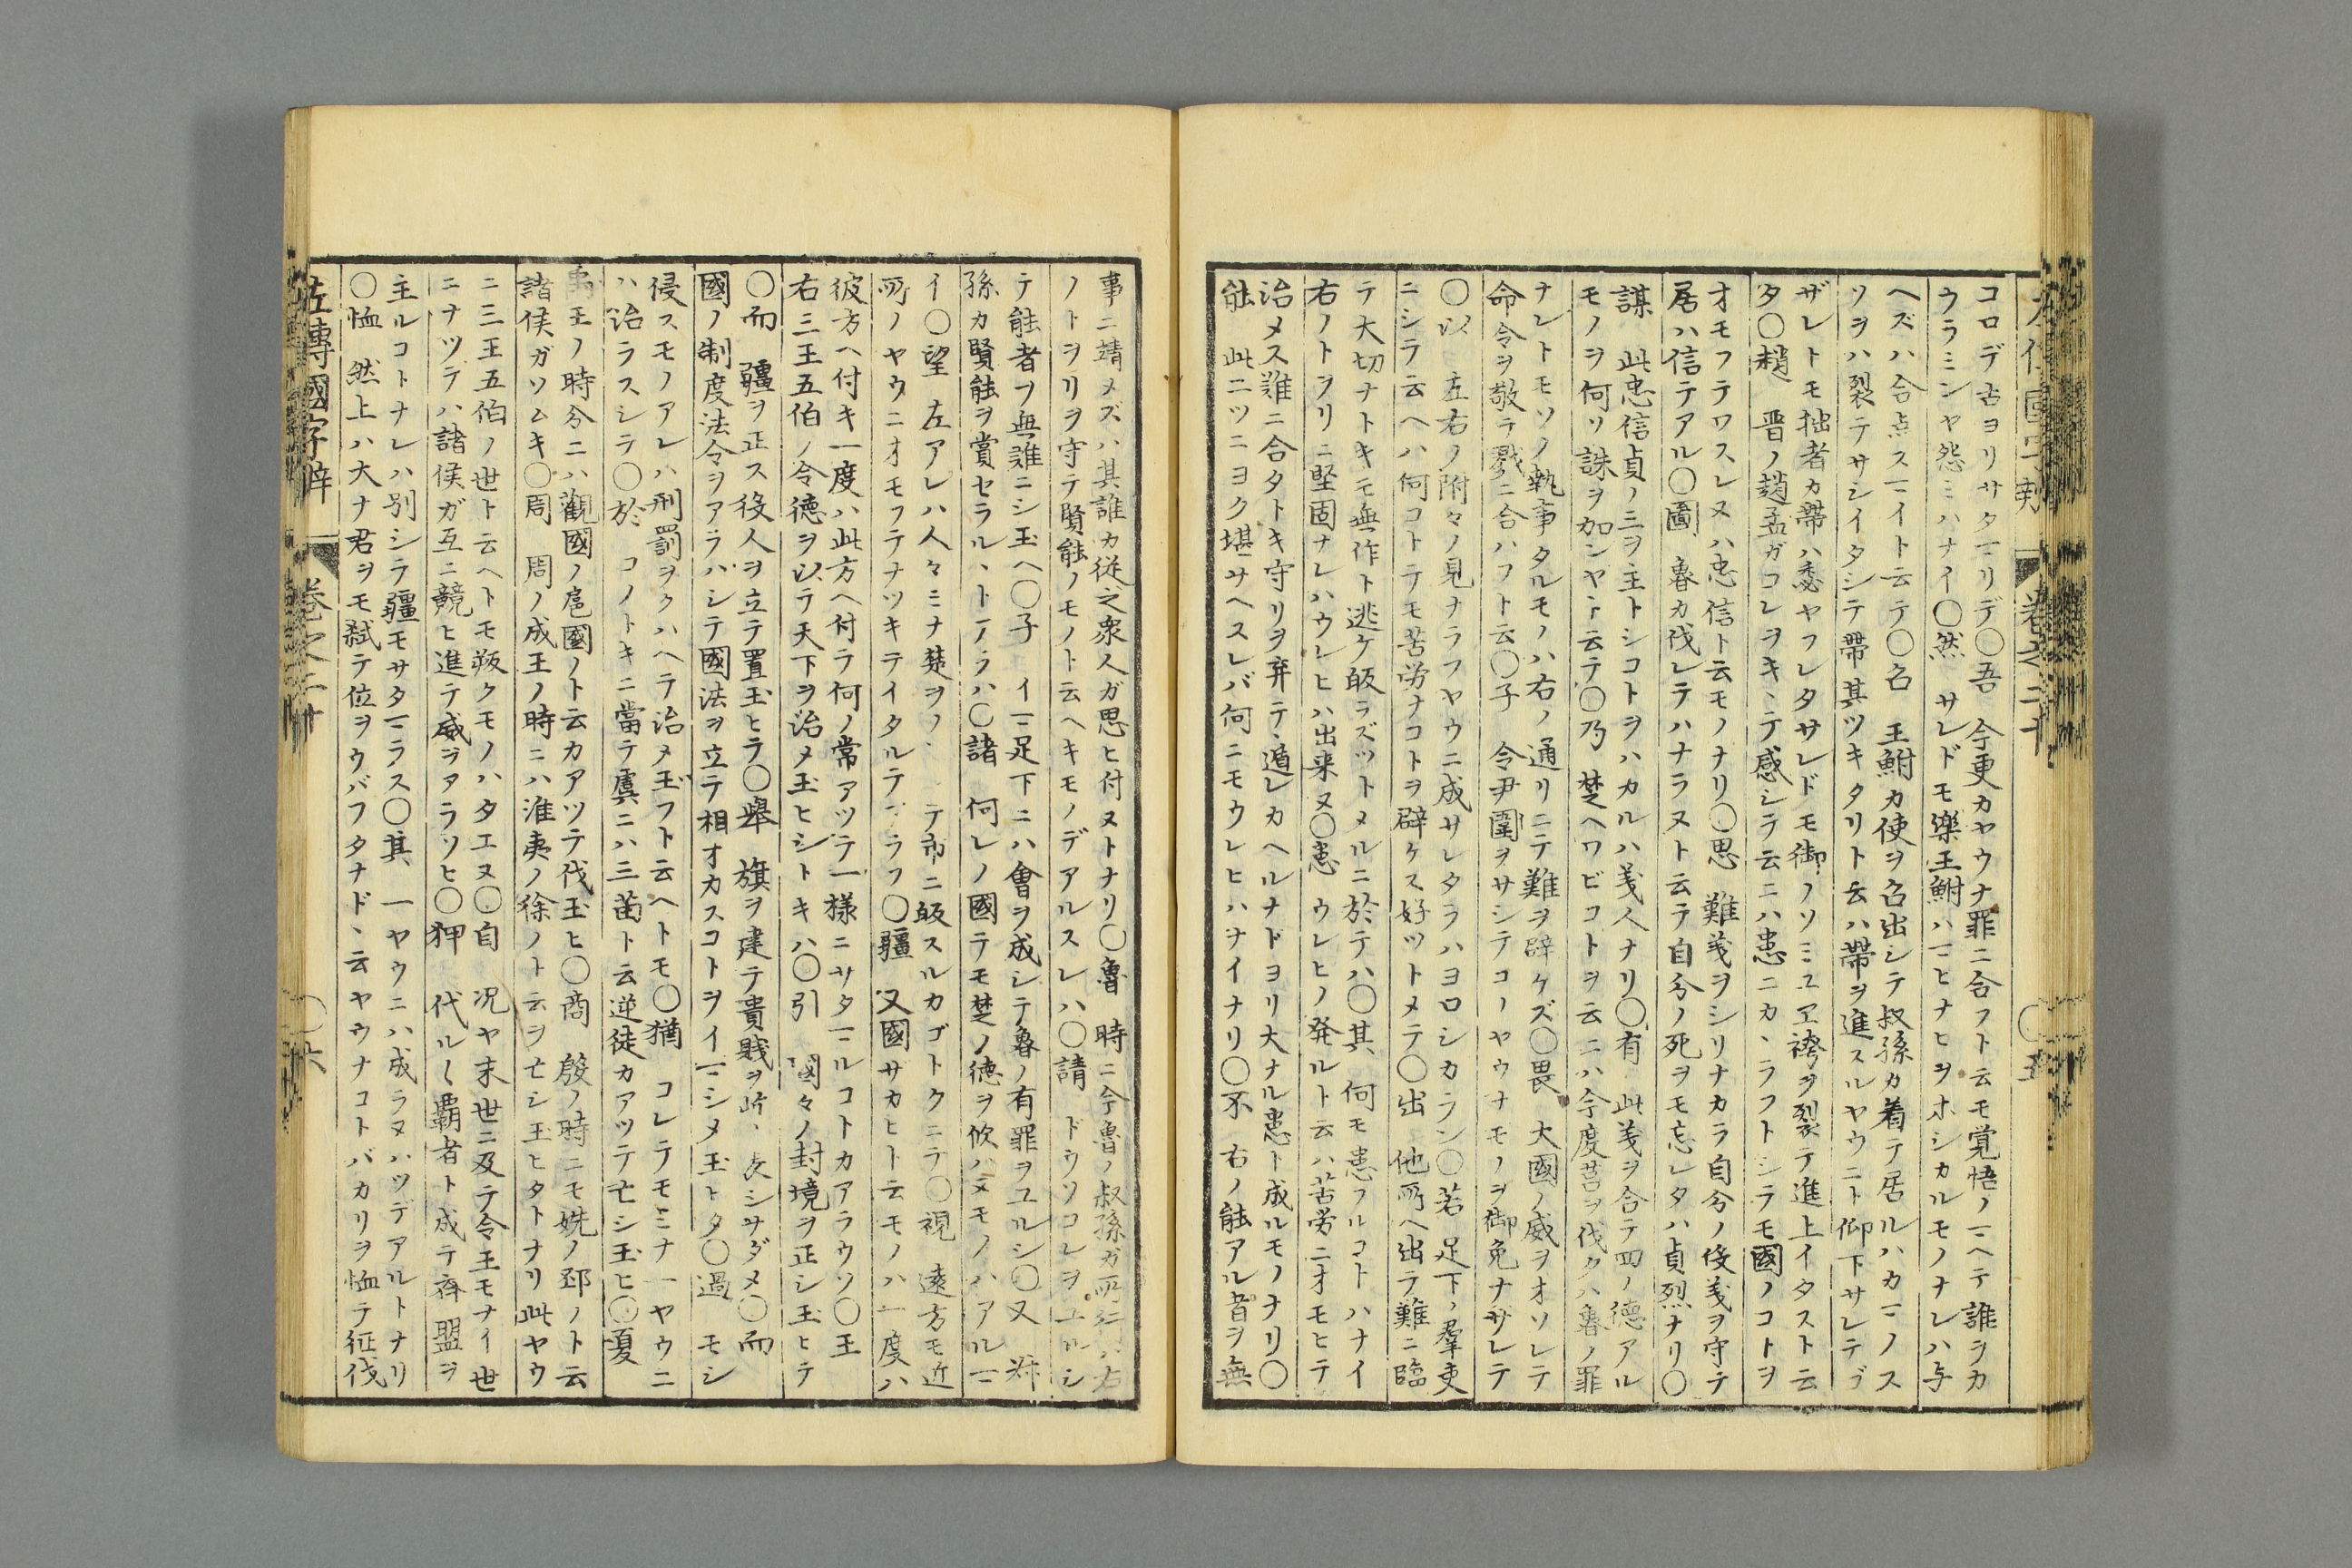 コロデ古ヨリサタマリデ〇吾 今更カヤウナ罪ニ合フト云モ覚悟ノマヘテ誰ヲカ
ウラミンヤ怨ミハナイ〇然 サレドモ楽王鮒ハマヒナヒヲホシカルモノナレハ与
ヘズハ合点スマイト云テ〇召 王鮒カ使ヲ召出シテ叔孫カ着テ居ルハカマノス
ソヲハ裂テサシイタシテ帶其ツキタリト云ハ帶ヲ進スルヤウニト仰下サレテゴ
ザレトモ拙者カ帶ハ悉ヤフレタサレドモ御ノソミユヱ袴ヲ裂テ進上イタスト云
タ〇趙 晋ノ趙孟ガコレヲキヽテ感シテ云ニハ患ニカヽラフトシテモ國ノコトヲ
オモフテワスレヌハ忠信ト云モノナリ〇思 難義ヲシリナカラ自分ノ役義ヲ守テ
居ハ信テアル〇圖 魯カ伐レテハナラヌト云テ自分ノ死ヲモ忘レタハ貞烈ナリ〇
謀 此忠信貞ノ三ヲ主トシコトヲハカルハ義人ナリ〇有 此義ヲ合テ四ノ德アル
モノヲ何ソ誅ヲ加ンヤト云テ〇乃 楚ヘワビコトヲ云ニハ今度莒ヲ伐タハ魯ノ罪
ナレトモソノ執事タルモノハ右ノ通リニテ難ヲ辟ケズ〇畏 大國ノ威ヲオソレテ
命令ヲ敬テ戮ニ合ハフト云〇子 令尹圍ヲサシテコノヤウナモノヲ御免ナサレテ
〇以 左右ノ附々ノ見ナラフヤウニ成サレタラハヨロシカラン〇若 足下ノ羣吏
ニシテ云ヘハ何コトテモ苦労ナコトヲ辟ケス好ツトメテ〇出 他所ヘ出テ難ニ臨
テ大切ナトキモ無作ト逃ケ皈ラズツトメルニ於テハ〇其 何モ患フルコトハナイ
右ノトヲリニ堅固ナレハウレヒハ出来ヌ〇患 ウレヒノ発ルト云ハ苦労ニオモヒテ
治メス難ニ合タトキ守リヲ弃テヽ遁レカヘルナドヨリ大ナル患ト成ルモノナリ〇
能 此二ツニヨク堪サヘスレバ何ニモウレヒハナイナリ〇不 右ノ能アル者ヲ無
事ニ靖メズハ其誰カ従之衆人ガ思ヒ付ヌトナリ〇魯 時ニ今魯ノ叔孫ガ所行ハ右
ノトヲリヲ守テ賢能ノモノト云ヘキモノデアルスレハ〇請 ドウソコレヲユルシ
テ能者ヲ無難ニシ玉ヘ〇子 イマ足下ニハ會ヲ成シテ魯ノ有罪ヲユルシ〇又
孫カ賢能ヲ賞セラルヽトアラハ〇諸 何レノ國テモ楚ノ徳ヲ欣ハヌモノハアルマ
イ〇望 左アレハ人々ミナ楚ヲ テ帰ニ皈スルカゴトクニテ〇視 遠方モ近
所ノヤウニオモフテナツキテイタルテ ラフ〇疆 又國サカヒト云モノハ一度ハ
彼方ヘ付キ一度ハ此方ヘ付テ何ノ常アツテ一様ニサタマルコトカアラウソ〇王
右三王五伯ノ令德ヲ以テ天下ヲ治メ玉ヒシトキハ〇引 國々ノ封境ヲ正シ玉ヒテ
〇而 疆ヲ正ス役人ヲ立テ置玉ヒテ〇舉 旗ヲ建テ貴賎ヲ 表シサダメ〇而
國ノ制度法令ヲアラハシテ國法ヲ立テ相オカスコトヲイマシメ玉ヒタ〇過 モシ
侵スモノアレハ刑罰ヲクハヘテ治メ玉フト云ヘトモ〇猶 コレテモミナ一ヤウニ
ハ治ラスシテ〇於 コノトキニ當テ虞ニハ三苗ト云逆徒カアツテ亡シ玉ヒ〇夏
禹王ノ時分ニハ觀國ノ扈國ノト云カアツテ伐玉ヒ〇商 殷ノ時ニモ姺ノ邳ノト云
諸侯ガソムキ〇周 周ノ成王ノ時ニハ淮夷ノ徐ノト云ヲ亡シ玉ヒタトナリ此ヤウ
ニ三王五伯ノ世ト云ヘトモ叛クモノハタエヌ〇自 况ヤ末世ニ及テ令王モナイ世
ニナツテハ諸侯ガ互ニ競ヒ進テ威ヲアラソヒ〇狎 代ル〱覇者ト成テ斉盟ヲ
主ルコトナレハ別シテ疆モサタマラス〇其 一ヤウニハ成ラヌハツデアルトナリ
〇恤 然上ハ大ナ君ヲモ弑テ位ヲウバフタナドヽ云ヤウナコトバカリヲ恤テ征伐
左傳國字辯 卷之二十